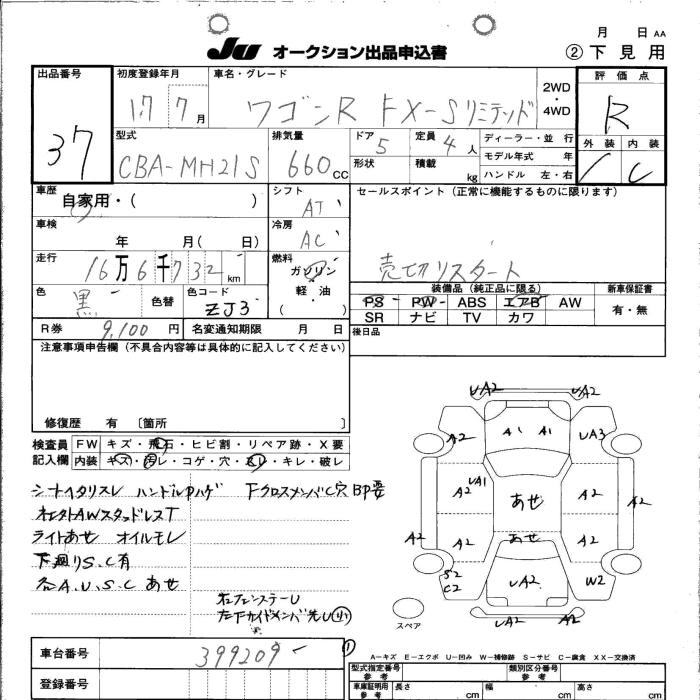 月 日 AA
JU オークション出品申込書 ② 下見用
出品番号 37
初度登録年月 17 7月
車名・グレード ワゴンR FX-Sリミテッド
2WD ・ 4WD
評価点 R
外装 内装 C
型式 CBA-MH21S
排気量 660cc
ドア 5
形状
定員 4人
積載 kg
ディーラー・並行
モデル年式 年
ハンドル 左・右
車歴 自家用・( )
シフト AT
セールスポイント(正常に機能するものに限ります)
売切リスタート
車検 年 月( 日)
冷房 AC
走行 16万6千732km
燃料 ガソリン 軽油 ( )
色 黒 色替
色コード ZJ3
装備品(純正品に限る)
PS PW ABS エアB AW
SR ナビ TV カワ
新車保証書 有・無
R券 9,100円 名変通知期限 月 日
後日品
注意事項申告欄(不具合内容等は具体的に記入してください)
修復歴 有 〔箇所 〕
検査員記入欄
FW キズ・飛石・ヒビ割・リペア跡・X要
内装 キズ・汚レ・コゲ・穴・スレ・キレ・破レ
シートヘタリスレ ハンドルPハゲ 下クロスメンバC穴BP要
社外AWスタッドレスT
ライトあせ オイルモレ
下廻りS.C有
各A.U.S.C あせ
右フェンステーU
左下ガイドメンバ先U
UA2 UA2
A2 A1 A1 UA3
A2 UA1 あせ A2 A2
A2 A2 あせ A2
S2 C2 UA2 W2
UA2 A2
スペア
A-キズ E-エクボ U-凹み W-補修跡 S-サビ C-腐食 XX-交換済
車台番号 399209
登録番号
型式指定番号 参考
類別区分番号 参考
車庫証明用 参考 長さ cm 幅 cm 高さ cm